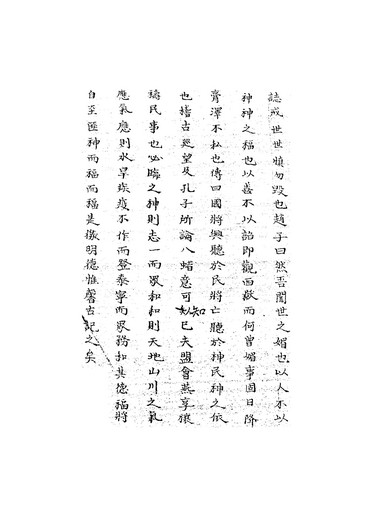 誌戒世世慎勿毀也趙子曰然吾聞世之媚也以人不以
神神之福也以善不以諂即觀西歐而何曾媚事國日降
膏澤不私也傳曰國將興聽於民將亡聽於神民神之依
也稽古逕望及孔子所論八蜡意可知已夫盟會燕享禳
禱民事也必臨之神則志一而眾和和則天地山川之氣
應氣應則水旱疾疫不作而登泰寧而眾務扣其德福將
自至匪神而福而福是徼明德惟馨古記之矣